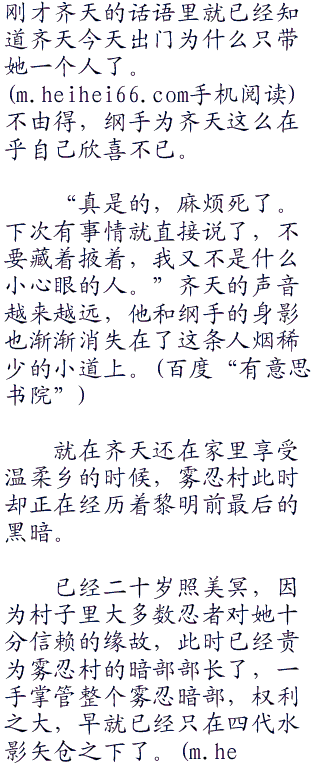 刚才齐天的话语里就已经知
道齐天今天出门为什么只带
她一个人了。
(m.heihei66.com手机阅读)
不由得，纲手为齐天这么在
乎自己欣喜不已。
“真是的，麻烦死了。
下次有事情就直接说了，不
要藏着掖着，我又不是什么
小心眼的人。”齐天的声音
越来越远，他和纲手的身影
也渐渐消失在了这条人烟稀
少的小道上。(百度“有意思
书院”)
就在齐天还在家里享受
温柔乡的时候，雾忍村此时
却正在经历着黎明前最后的
黑暗。
已经二十岁照美冥，因
为村子里大多数忍者对她十
分信赖的缘故，此时已经贵
为雾忍村的暗部部长了，一
手掌管整个雾忍暗部，权利
之大，早就已经只在四代水
影矢仓之下了。(m.he